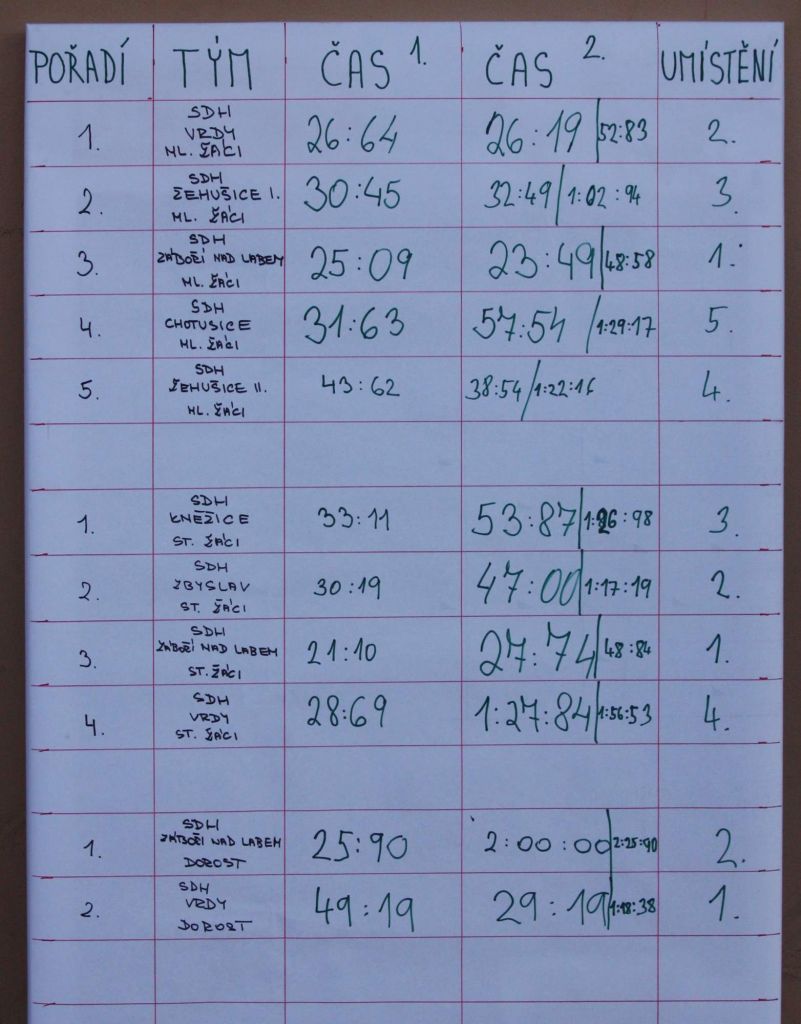 POŘADÍ TÝM ČAS 1. ČAS 2. UMÍSTĚNÍ
1. SDH VRDY ML. ŽÁCI 26:64 26:19 / 52:83 2.
2. SDH ŽEHUŠICE I. ML. ŽÁCI 30:45 32:49 / 1:02:94 3.
3. SDH ZÁBOŘÍ NAD LABEM ML. ŽÁCI 25:09 23:49 / 48:58 1.
4. SDH CHOTUSICE ML. ŽÁCI 31:63 57:54 / 1:29:17 5.
5. SDH ŽEHUŠICE II. ML. ŽÁCI 43:62 38:54 / 1:22:16 4.
1. SDH KNĚŽICE ST. ŽÁCI 33:11 53:87 / 1:26:98 3.
2. SDH ZBYSLAV ST. ŽÁCI 30:19 47:00 / 1:17:19 2.
3. SDH ZÁBOŘÍ NAD LABEM ST. ŽÁCI 21:10 27:74 / 48:84 1.
4. SDH VRDY ST. ŽÁCI 28:69 1:27:84 / 1:56:53 4.
1. SDH ZÁBOŘÍ NAD LABEM DOROST 25:90 2:00:00 / 2:25:90 2.
2. SDH VRDY DOROST 49:19 29:19 / 1:18:38 1.